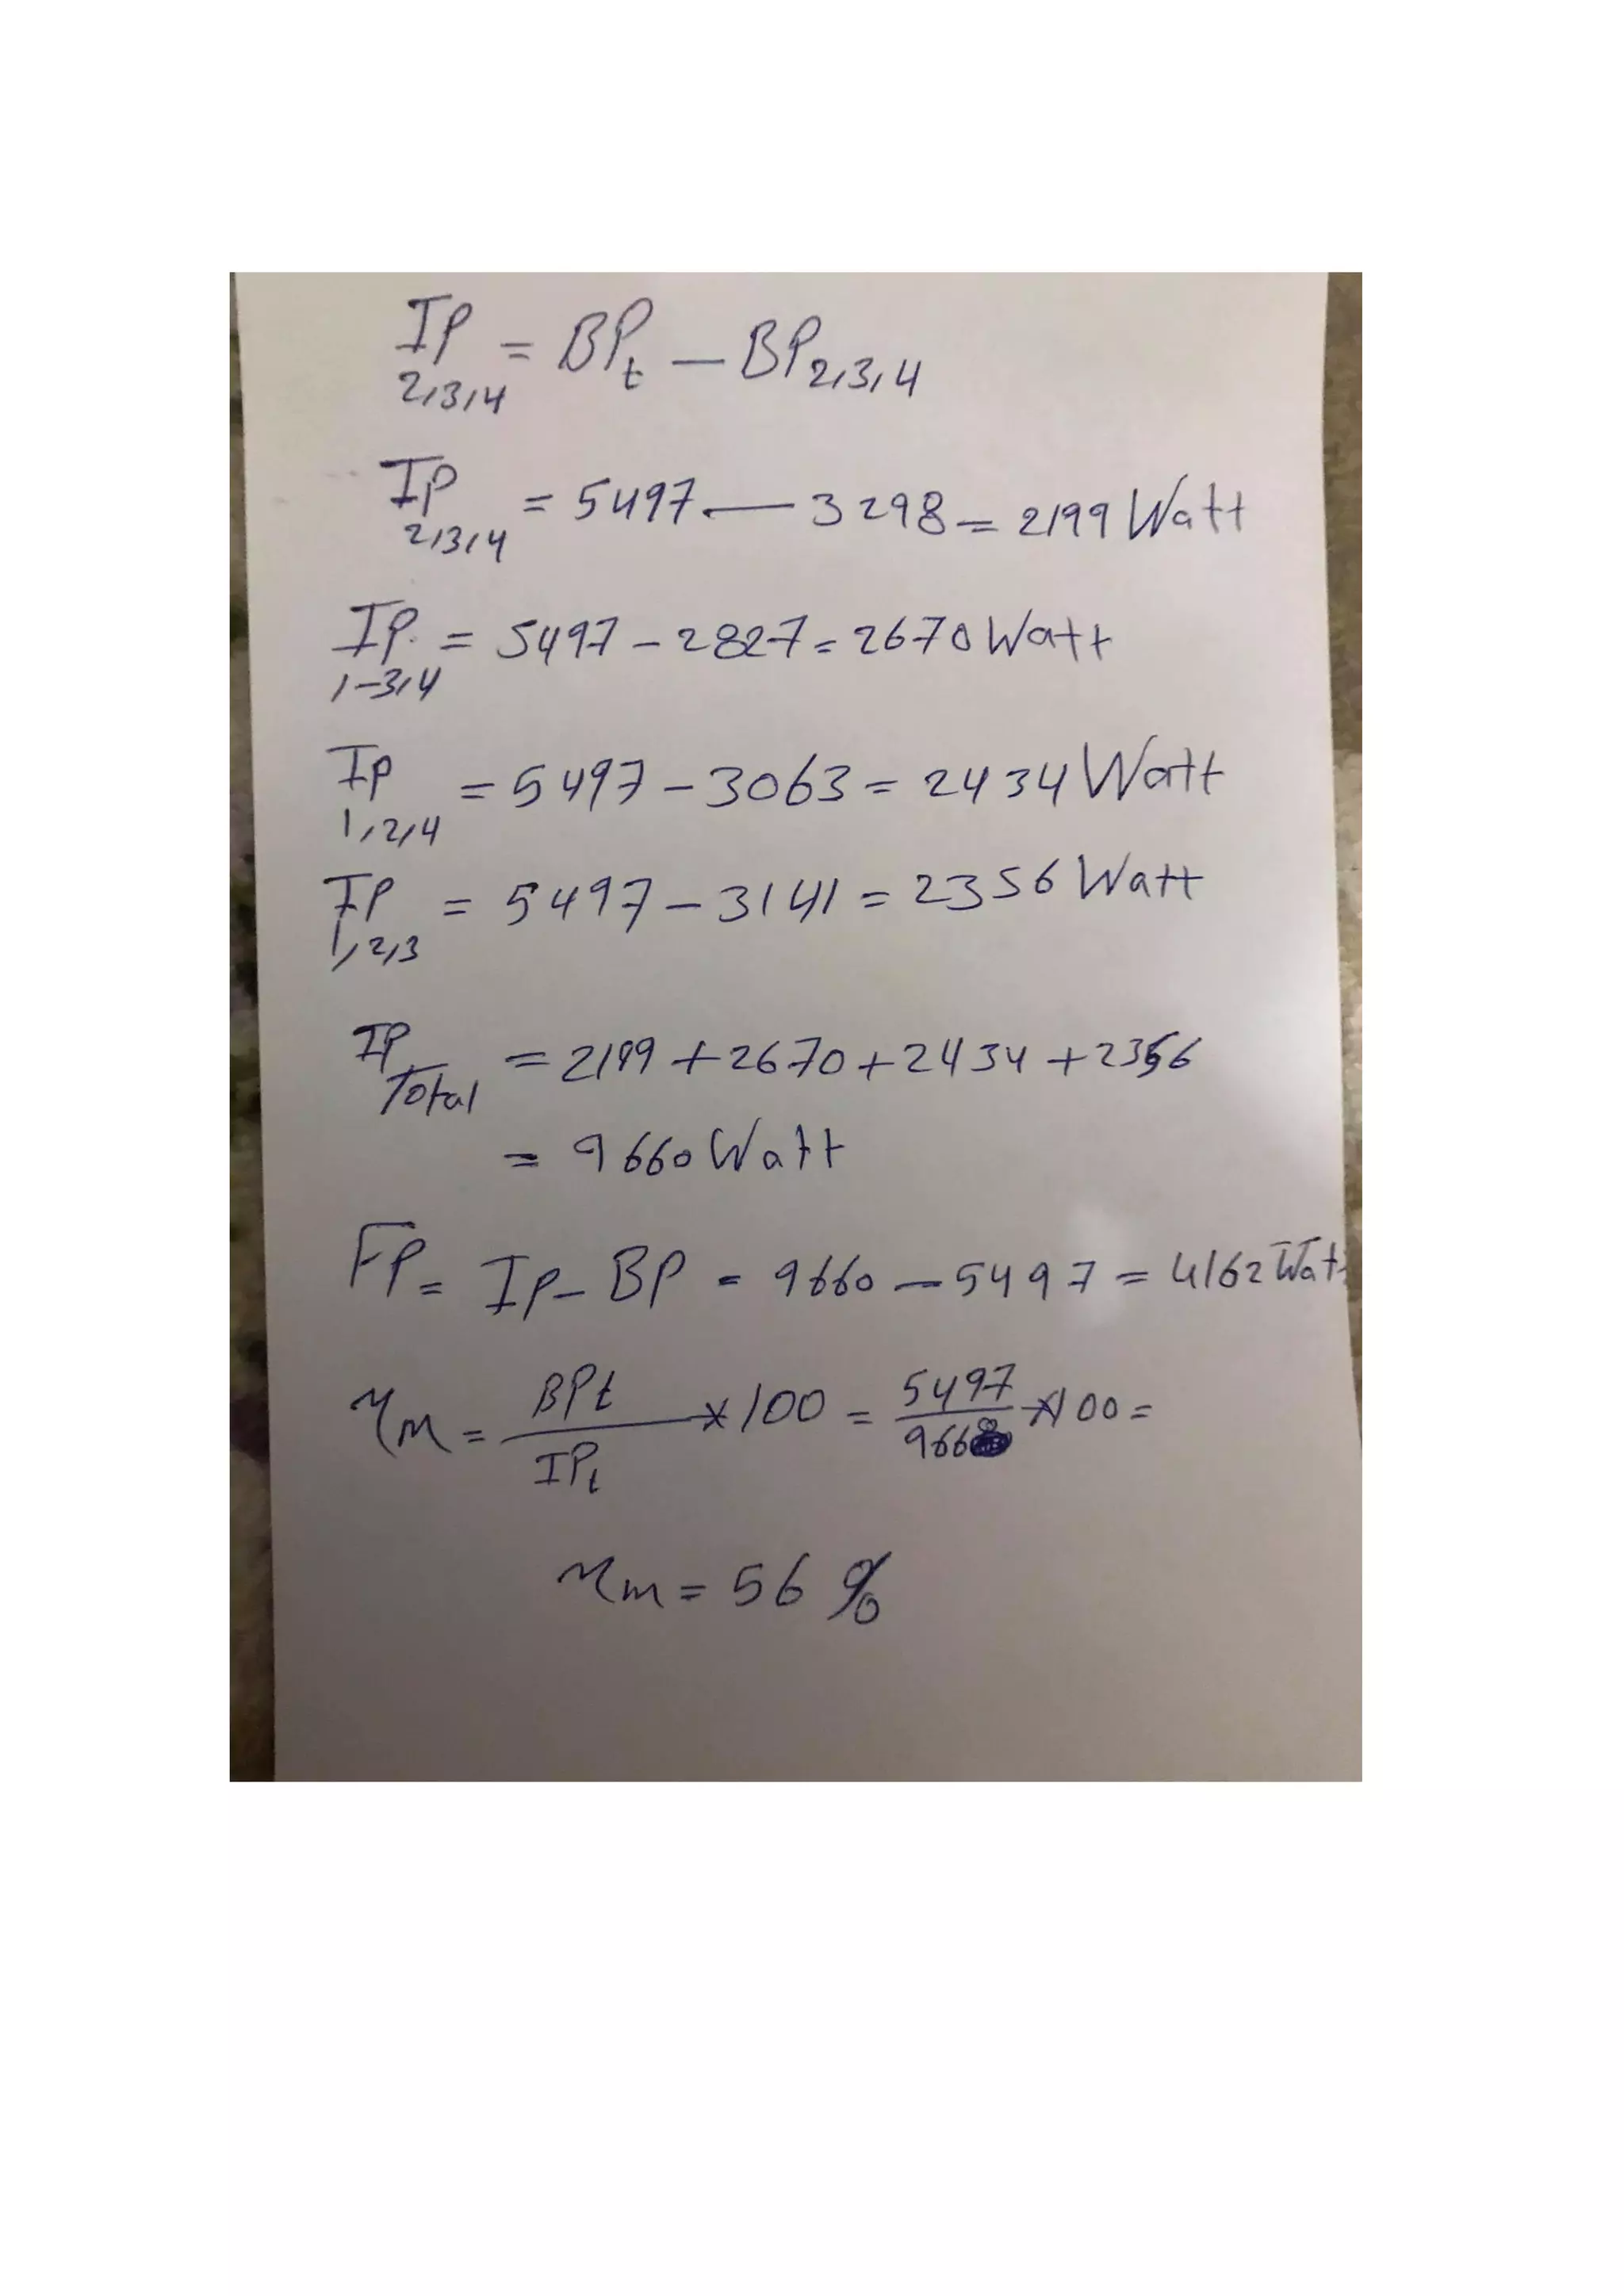 IP2,3,4 = BPt — BP2,3,4
IP2,3,4 = 5497 — 3298 = 2199 Watt
IP1-3,4 = 5497 - 2827 = 2670 Watt
IP1,2,4 = 5497 - 3063 = 2434 Watt
IP1,2,3 = 5497 - 3141 = 2356 Watt
IPTotal = 2199 + 2670 + 2434 + 2356
= 9660 Watt
FP = IP - BP = 9660 — 5497 = 4162 Watt
ηm = BPt / IPt * 100 = 5497 / 9660 * 100 =
ηm = 56 %